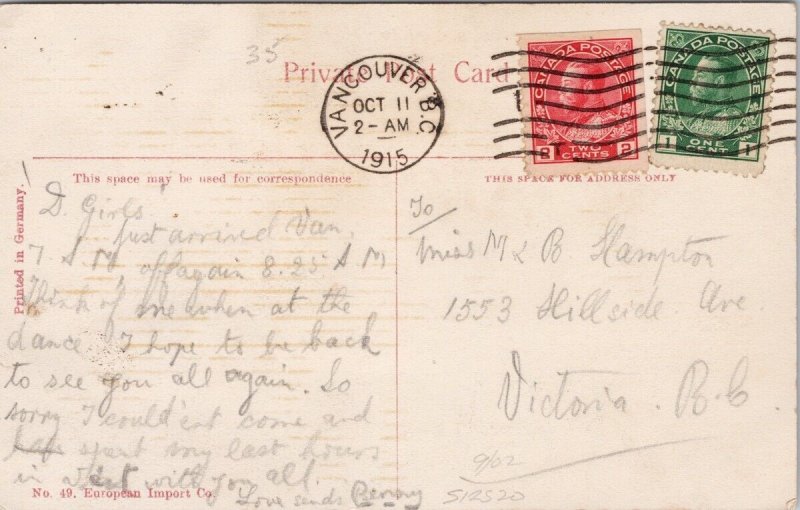 35
Private Post Card
VANCOUVER, B.C.
OCT 11
2-AM
1915
CANADA POSTAGE
2 TWO CENTS 2
CANADA POSTAGE
1 ONE CENT 1
Printed in Germany.
This space may be used for correspondence
D. Girls
Just arrived Van.
7 A.M. off again 8.25 A M
Think of me when at the
dance. I hope to be back
to see you all again. So
sorry I could'ent come and
spent my last hours
in with you all.
Love sends Benny
No. 49. European Import Co.
THIS SPACE FOR ADDRESS ONLY
To
Miss M & B Hampton
1553 Hillside Ave.
Victoria. B.C.
9/02
S12520